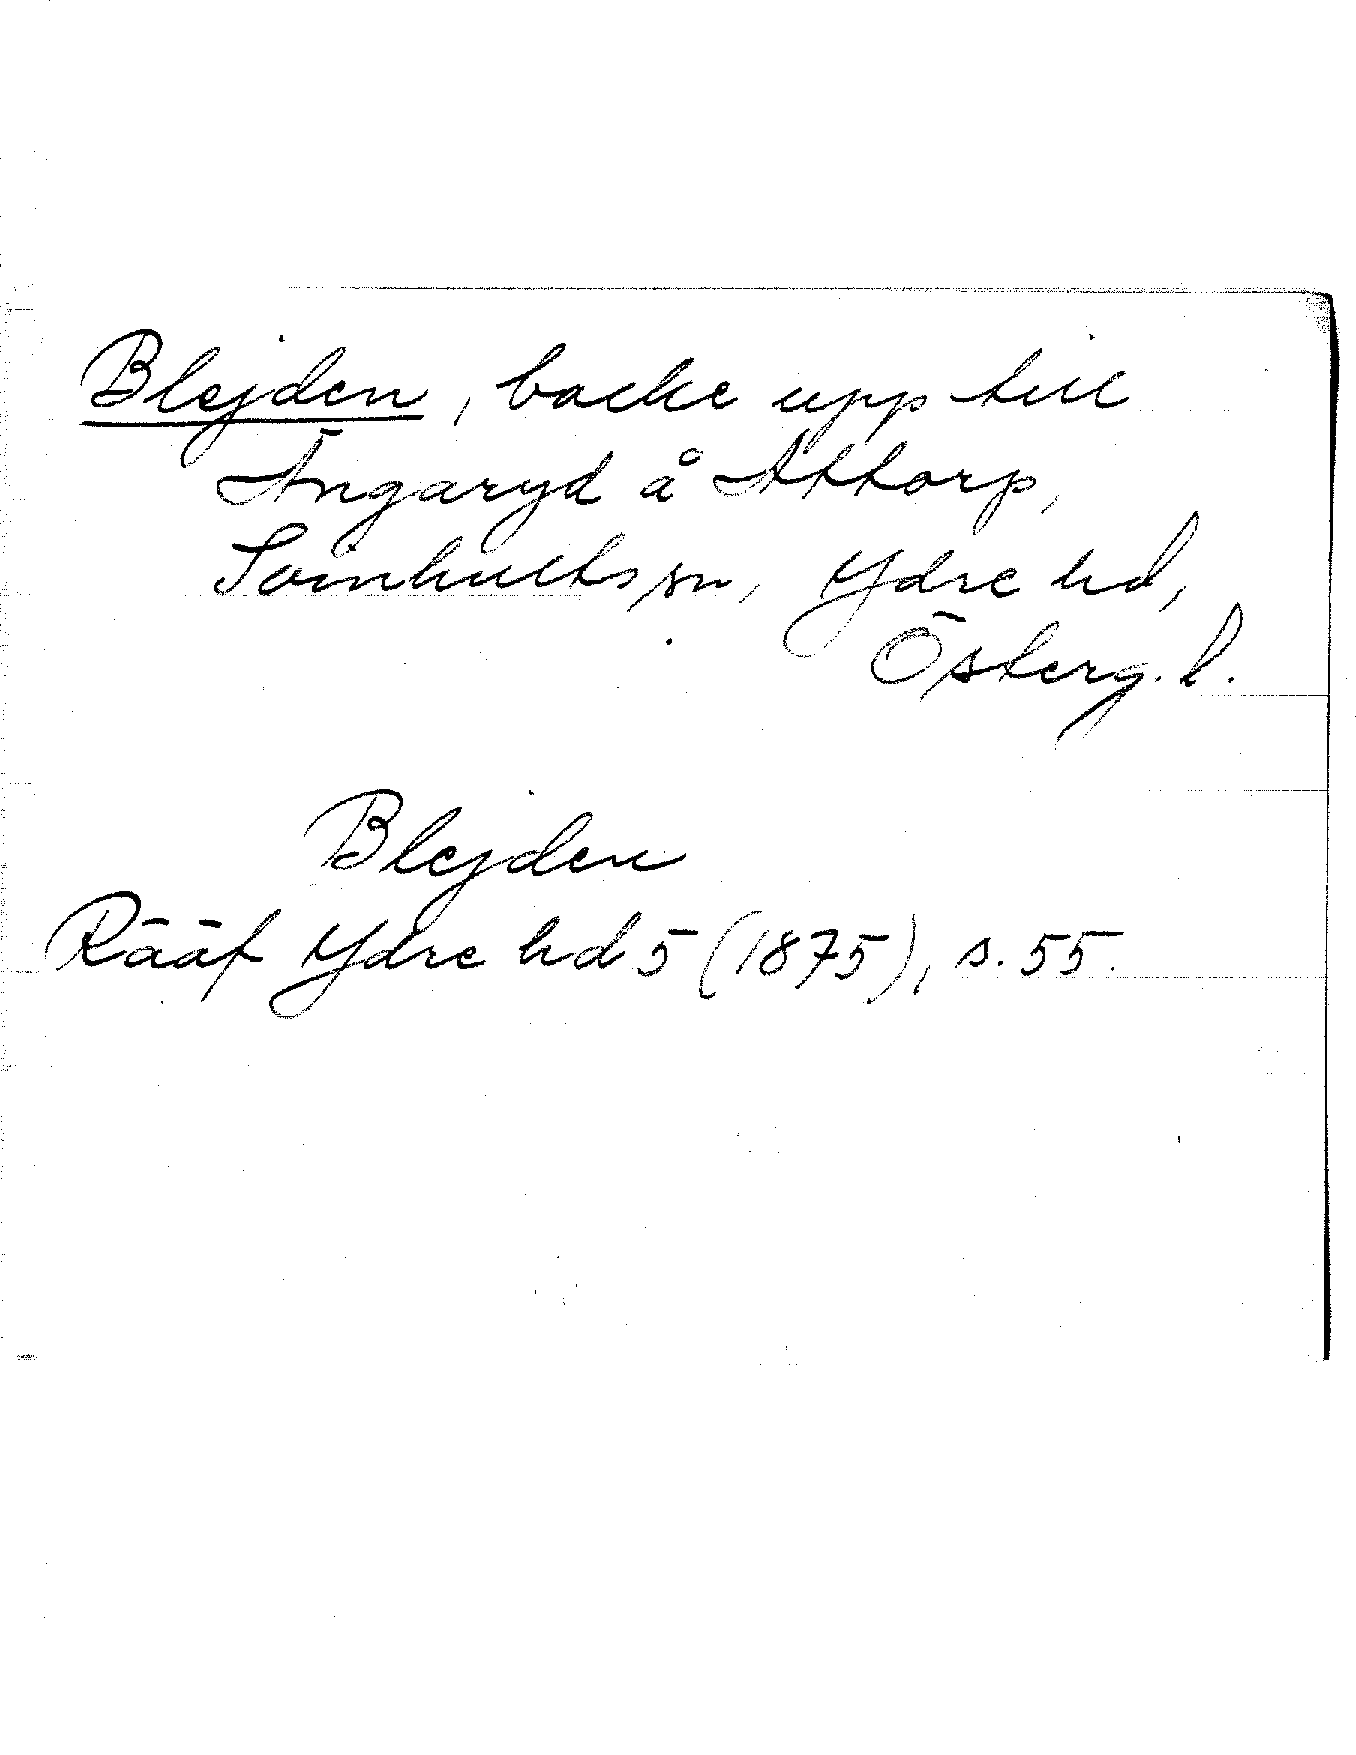 Blejden, backe upp till
Ängaryd å Attorp,
Svinhults sn, Ydre hd,
Österg. l.
Blejden
Rääf Ydre hd 5 (1875), s. 55.